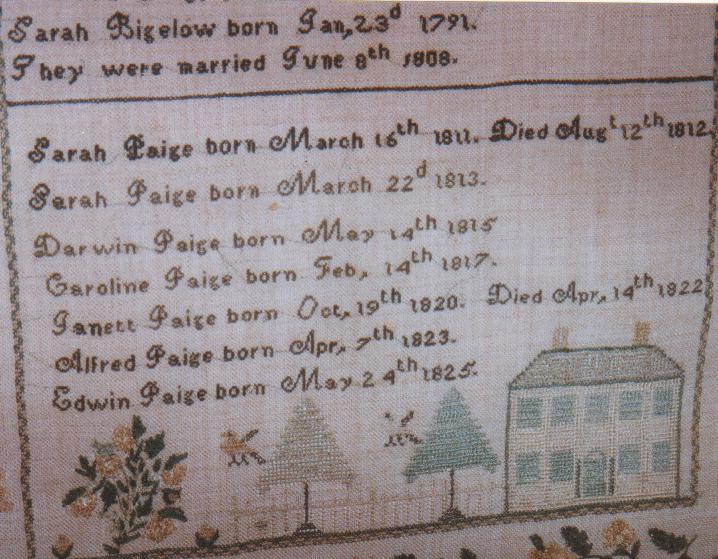 Sarah Bigelow born Jan, 23d 1791.
They were married June 8th 1808.
Sarah Paige born March 16th 1811. Died Augt 12th 1812.
Sarah Paige born March 22d 1813.
Darwin Paige born May 14th 1815
Caroline Paige born Feb, 14th 1817.
Janett Paige born Oct, 19th 1820. Died Apr, 14th 1822
Alfred Paige born Apr, 7th 1823.
Edwin Paige born May 24th 1825.